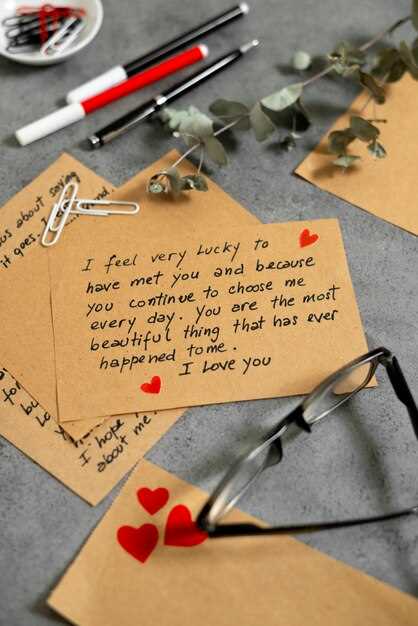 ous about saying
it goes.
I feel very Lucky to
have met you and because
you continue to choose me
every day. You are the most
beautiful thing that has ever
happened to me.
I Love you
I hope
about me.